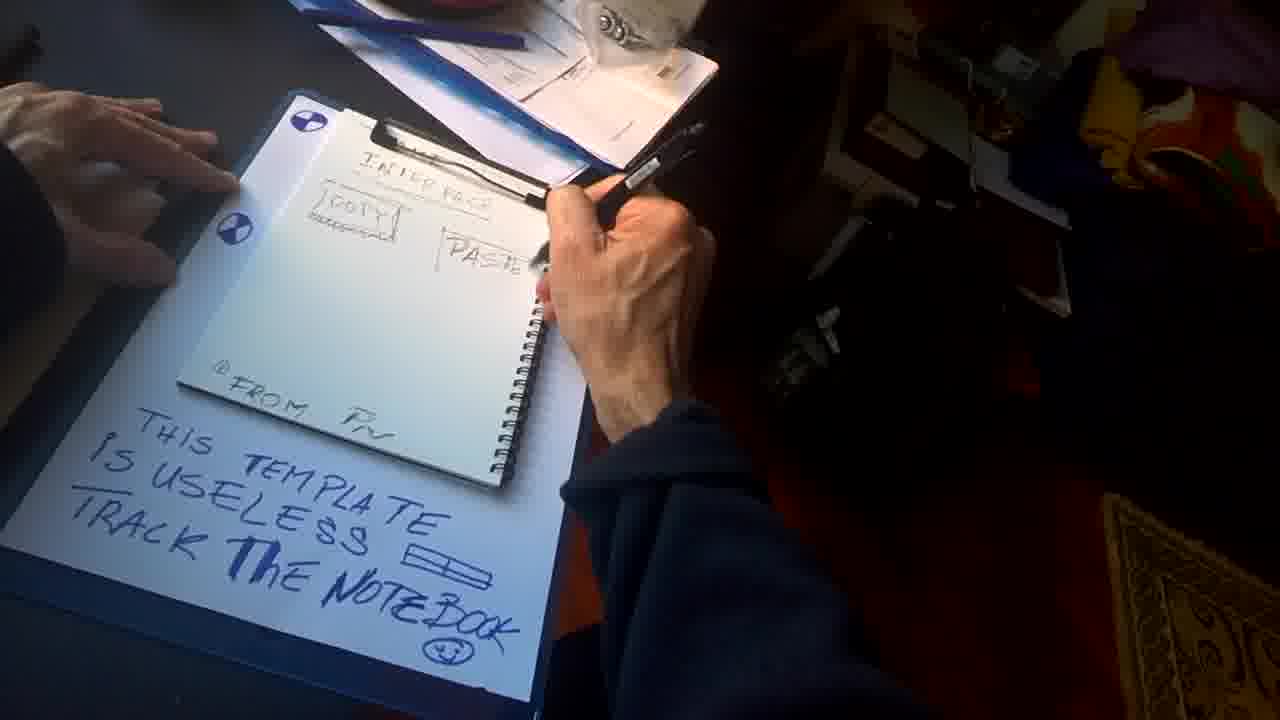 INTERFACE
COPY
PASTE
① FROM
THIS TEMPLATE
IS USELESS
TRACK THE NOTEBOOK